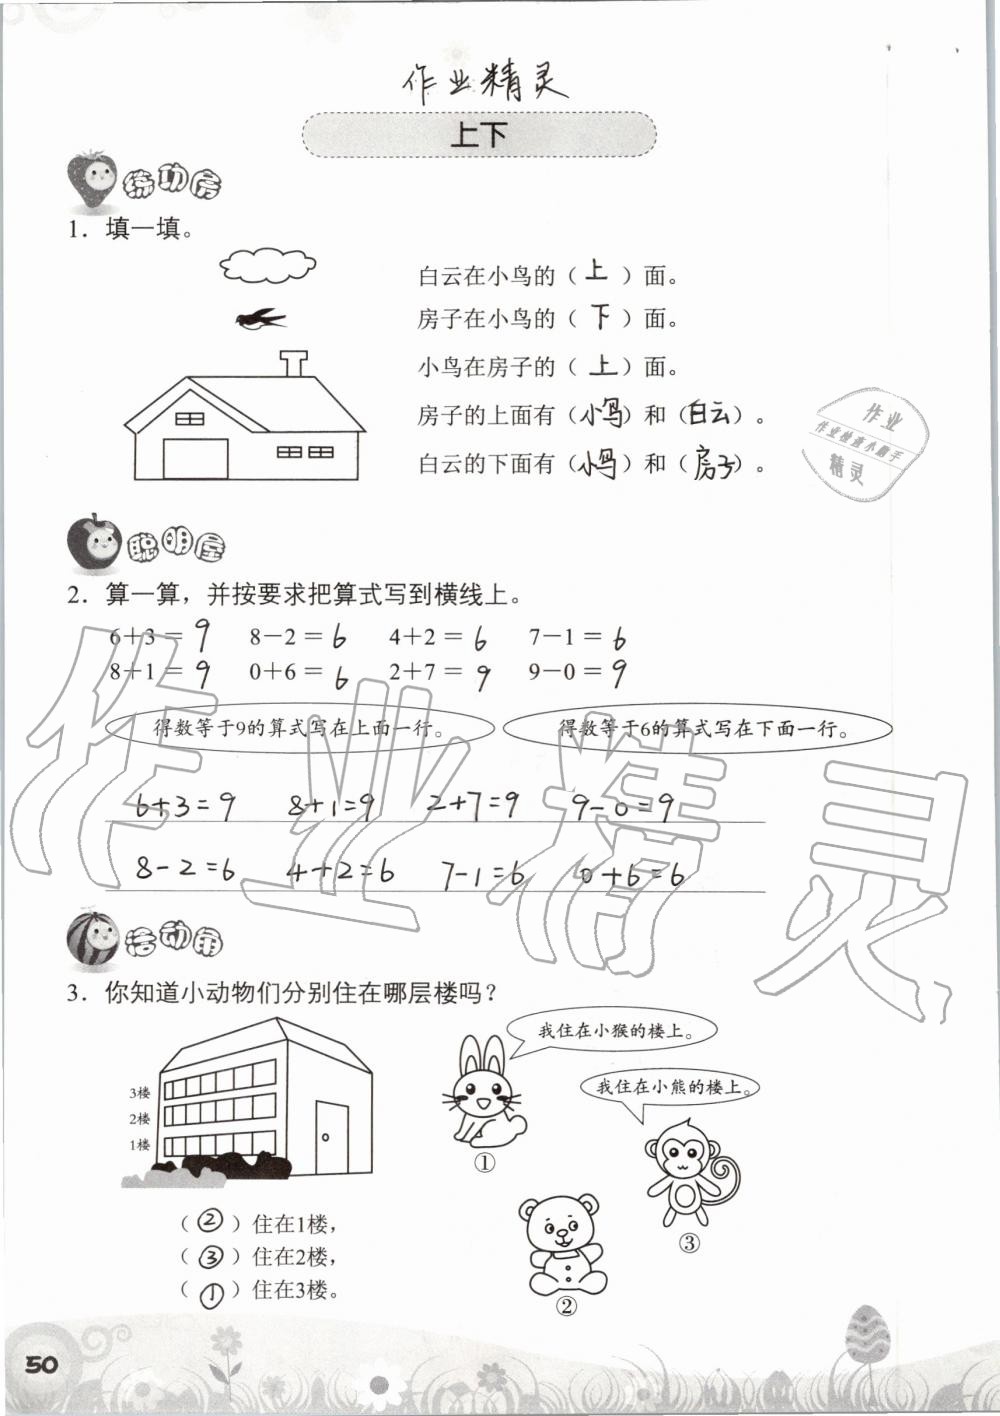 作业精灵
上下
练功房
1. 填一填。
白云在小鸟的（上）面。
房子在小鸟的（下）面。
小鸟在房子的（上）面。
房子的上面有（小鸟）和（白云）。
白云的下面有（小鸟）和（房子）。
作业
作业检查小助手
精灵
聪明屋
2. 算一算，并按要求把算式写到横线上。
6＋3＝9 8－2＝6 4＋2＝6 7－1＝6
8＋1＝9 0＋6＝6 2＋7＝9 9－0＝9
得数等于9的算式写在上面一行。 得数等于6的算式写在下面一行。
6+3=9 8+1=9 2+7=9 9-0=9
8-2=6 4+2=6 7-1=6 0+6=6
作业精灵
活动角
3. 你知道小动物们分别住在哪层楼吗？
我住在小猴的楼上。
我住在小熊的楼上。
3楼
2楼
1楼
①
③
②
（②）住在1楼，
（③）住在2楼，
（①）住在3楼。
50